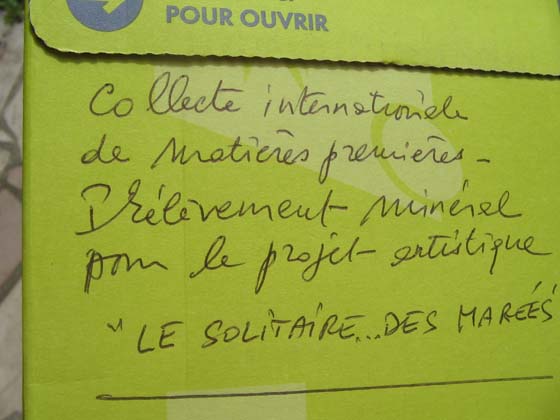 POUR OUVRIR
Collecte internationale
de matières premières -
Prélèvement minéral
pour le projet artistique
"LE SOLITAIRE...DES MARÉES